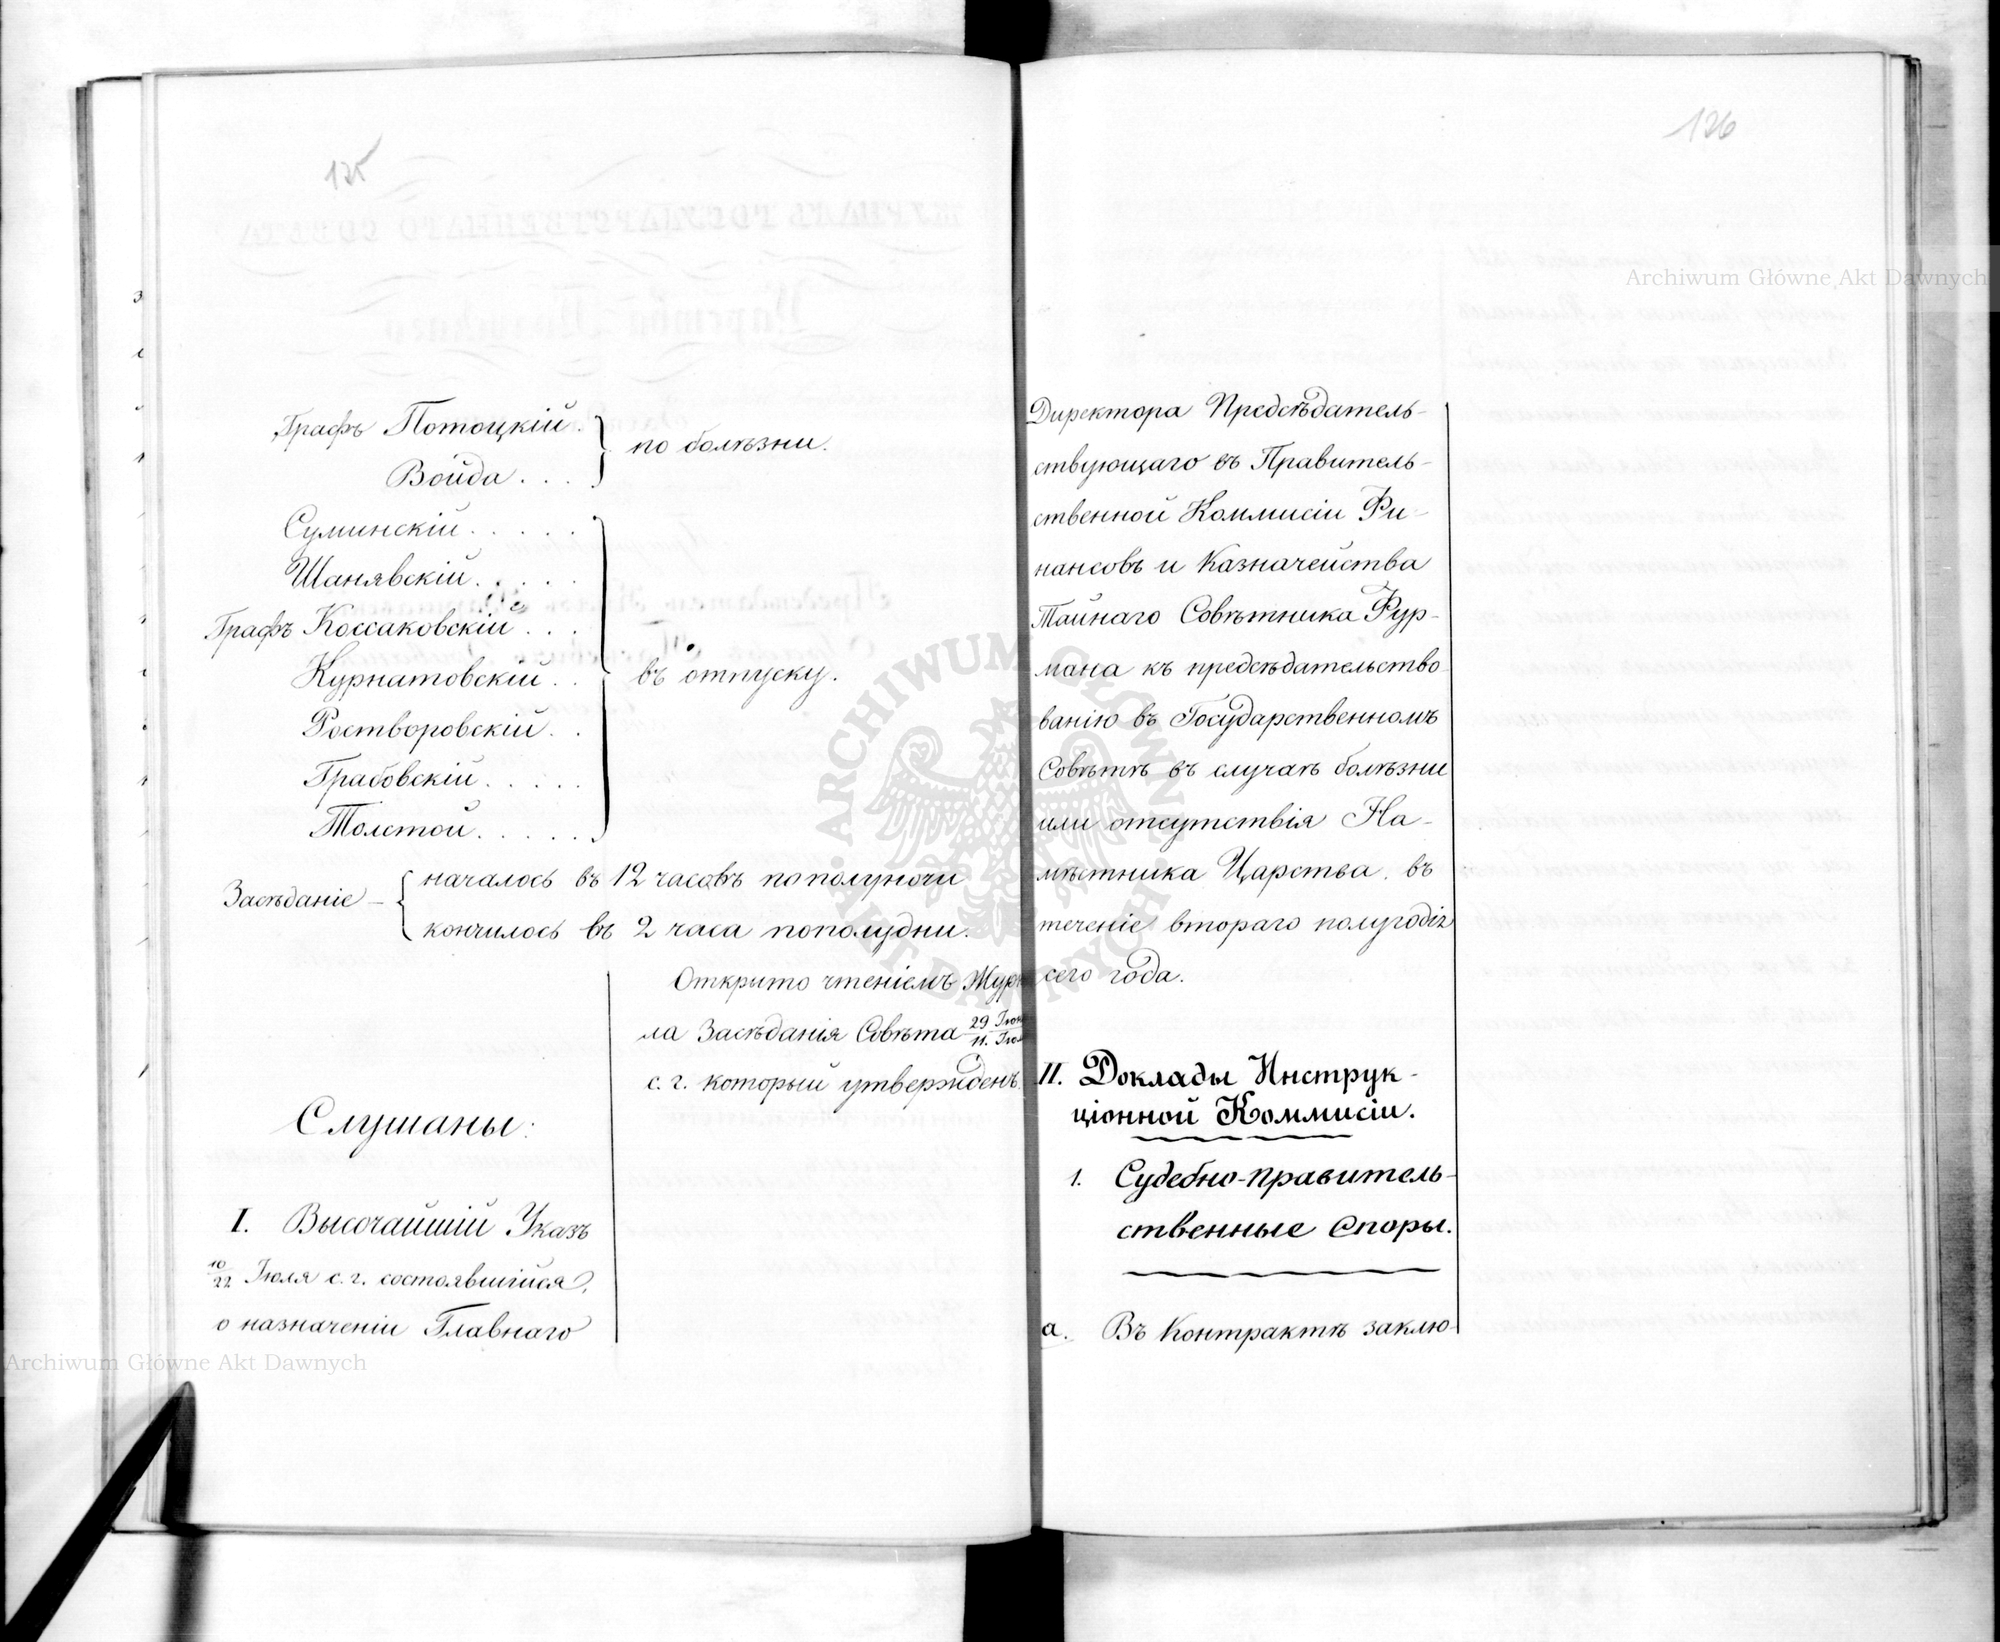 125
Графъ Потоцкій.
Войда . . .
по болѣзни.
Суминскій . . . . .
Шанявскій . . . . .
Графъ Коссаковскій . . .
Курнатовскій . .
Ростворовскій . .
Грабовскій . . . . .
Толстой . . . . .
въ отпуску.
Засѣданіе –
началось въ 12 часовъ пополуночи
кончилось въ 2 часа пополудни.
Открыто чтеніемъ Журн
ла Засѣданія Совѣта 29 Іюн / 11. Іюл
с. г. который утвержденъ.
Слушаны:
I. Высочайшій Указъ
10/22 Іюля с. г. состоявшійся,
о назначеніи Главнаго
126
Директора Предсѣдатель-
ствующаго въ Правитель-
ственной Коммисіи Фи-
нансовъ и Казначейства
Тайнаго Совѣтника Фур-
мана къ предсѣдательство-
ванію въ Государственномъ
Совѣтѣ въ случаѣ болѣзни
или отсутствія На-
мѣстника Царства, въ
теченіе втораго полугодія
сего года.
II. Доклады Инструк-
ціонной Коммисіи.
1. Судебно-правитель-
ственные споры.
а. Въ контрактѣ заклю-
Archiwum Główne Akt Dawnych
Archiwum Główne Akt Dawnych
ARCHIWUM GŁÓWNE AKT DAWNYCH